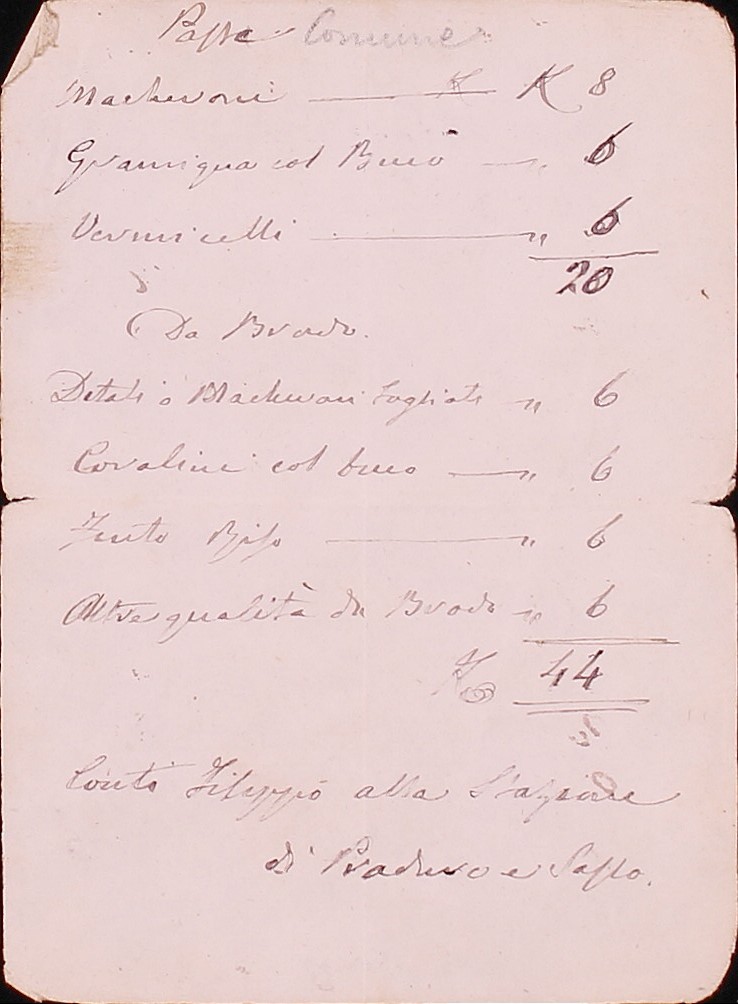 Paste Comune
Macheroni — K 8
Gramigna col Buco — „ 6
Vermicelli — „ 6
20
Da Brodo.
Ditali o Macheroni Tagliati „ 6
Coralini col buco — „ 6
Finto Riso — „ 6
Altre qualità da Brodo „ 6
Ko 44
Conti Filippo alla Stazione
di Praduro e Sasso.